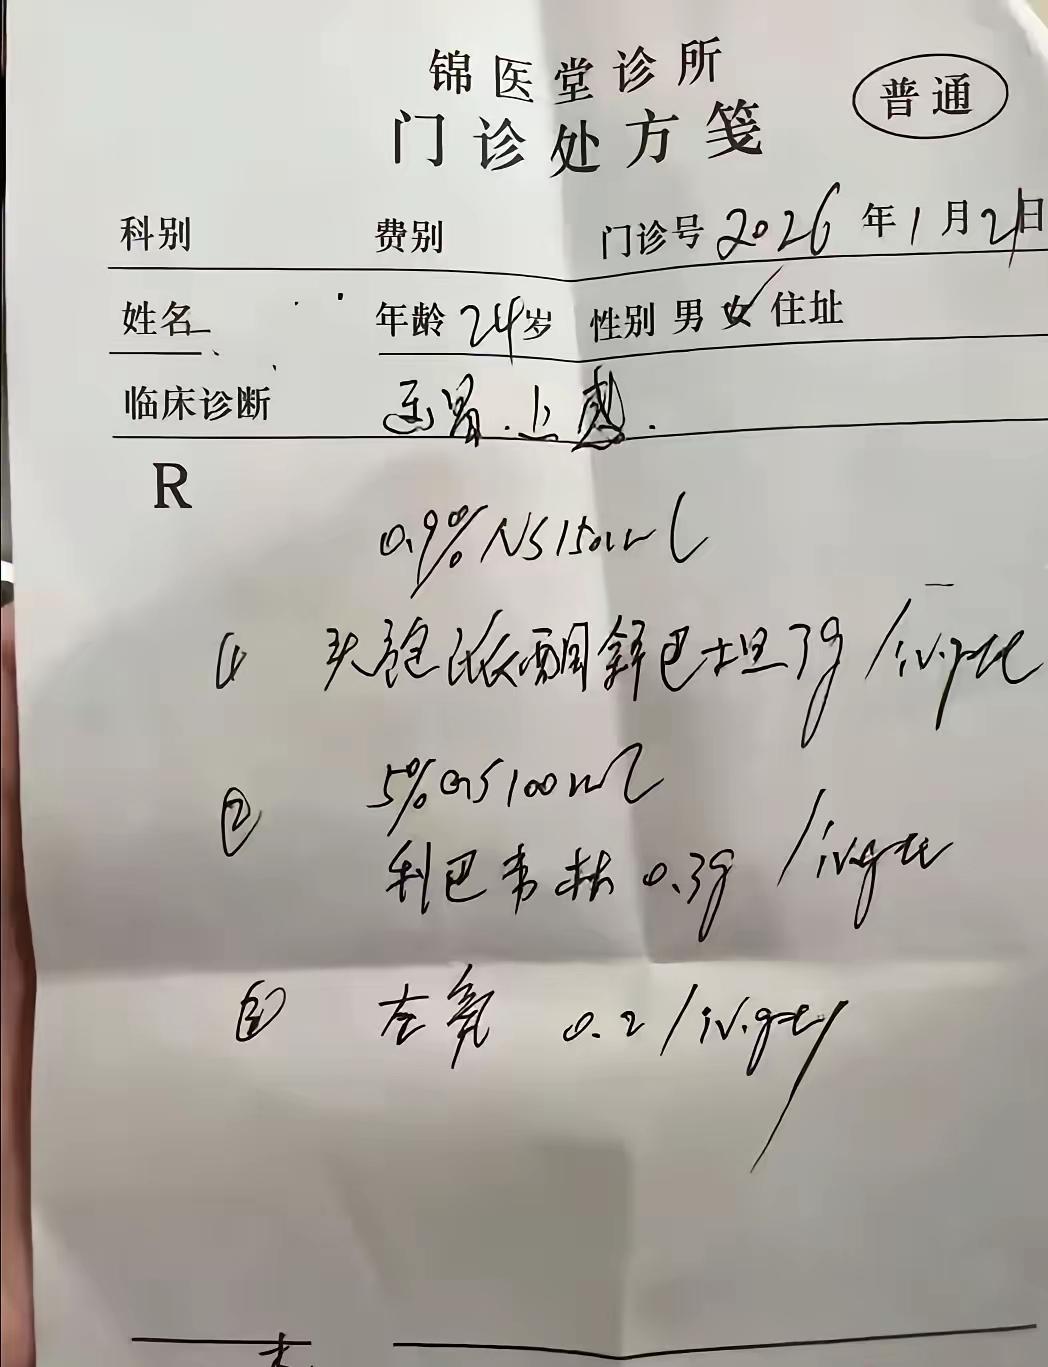 锦医堂诊所
普通
门诊处方笺
科别 费别 门诊号 2026年1月21日
姓名 年龄 24岁 性别 男 女✓ 住址
临床诊断 胃.上感.
R
0.9% NS 150ml
① 头孢哌酮舒巴坦 3g / iv.gtt
5% GS 100ml
②
利巴韦林 0.3g / iv.gtt
③ 左氧 0.2 / iv.gtt